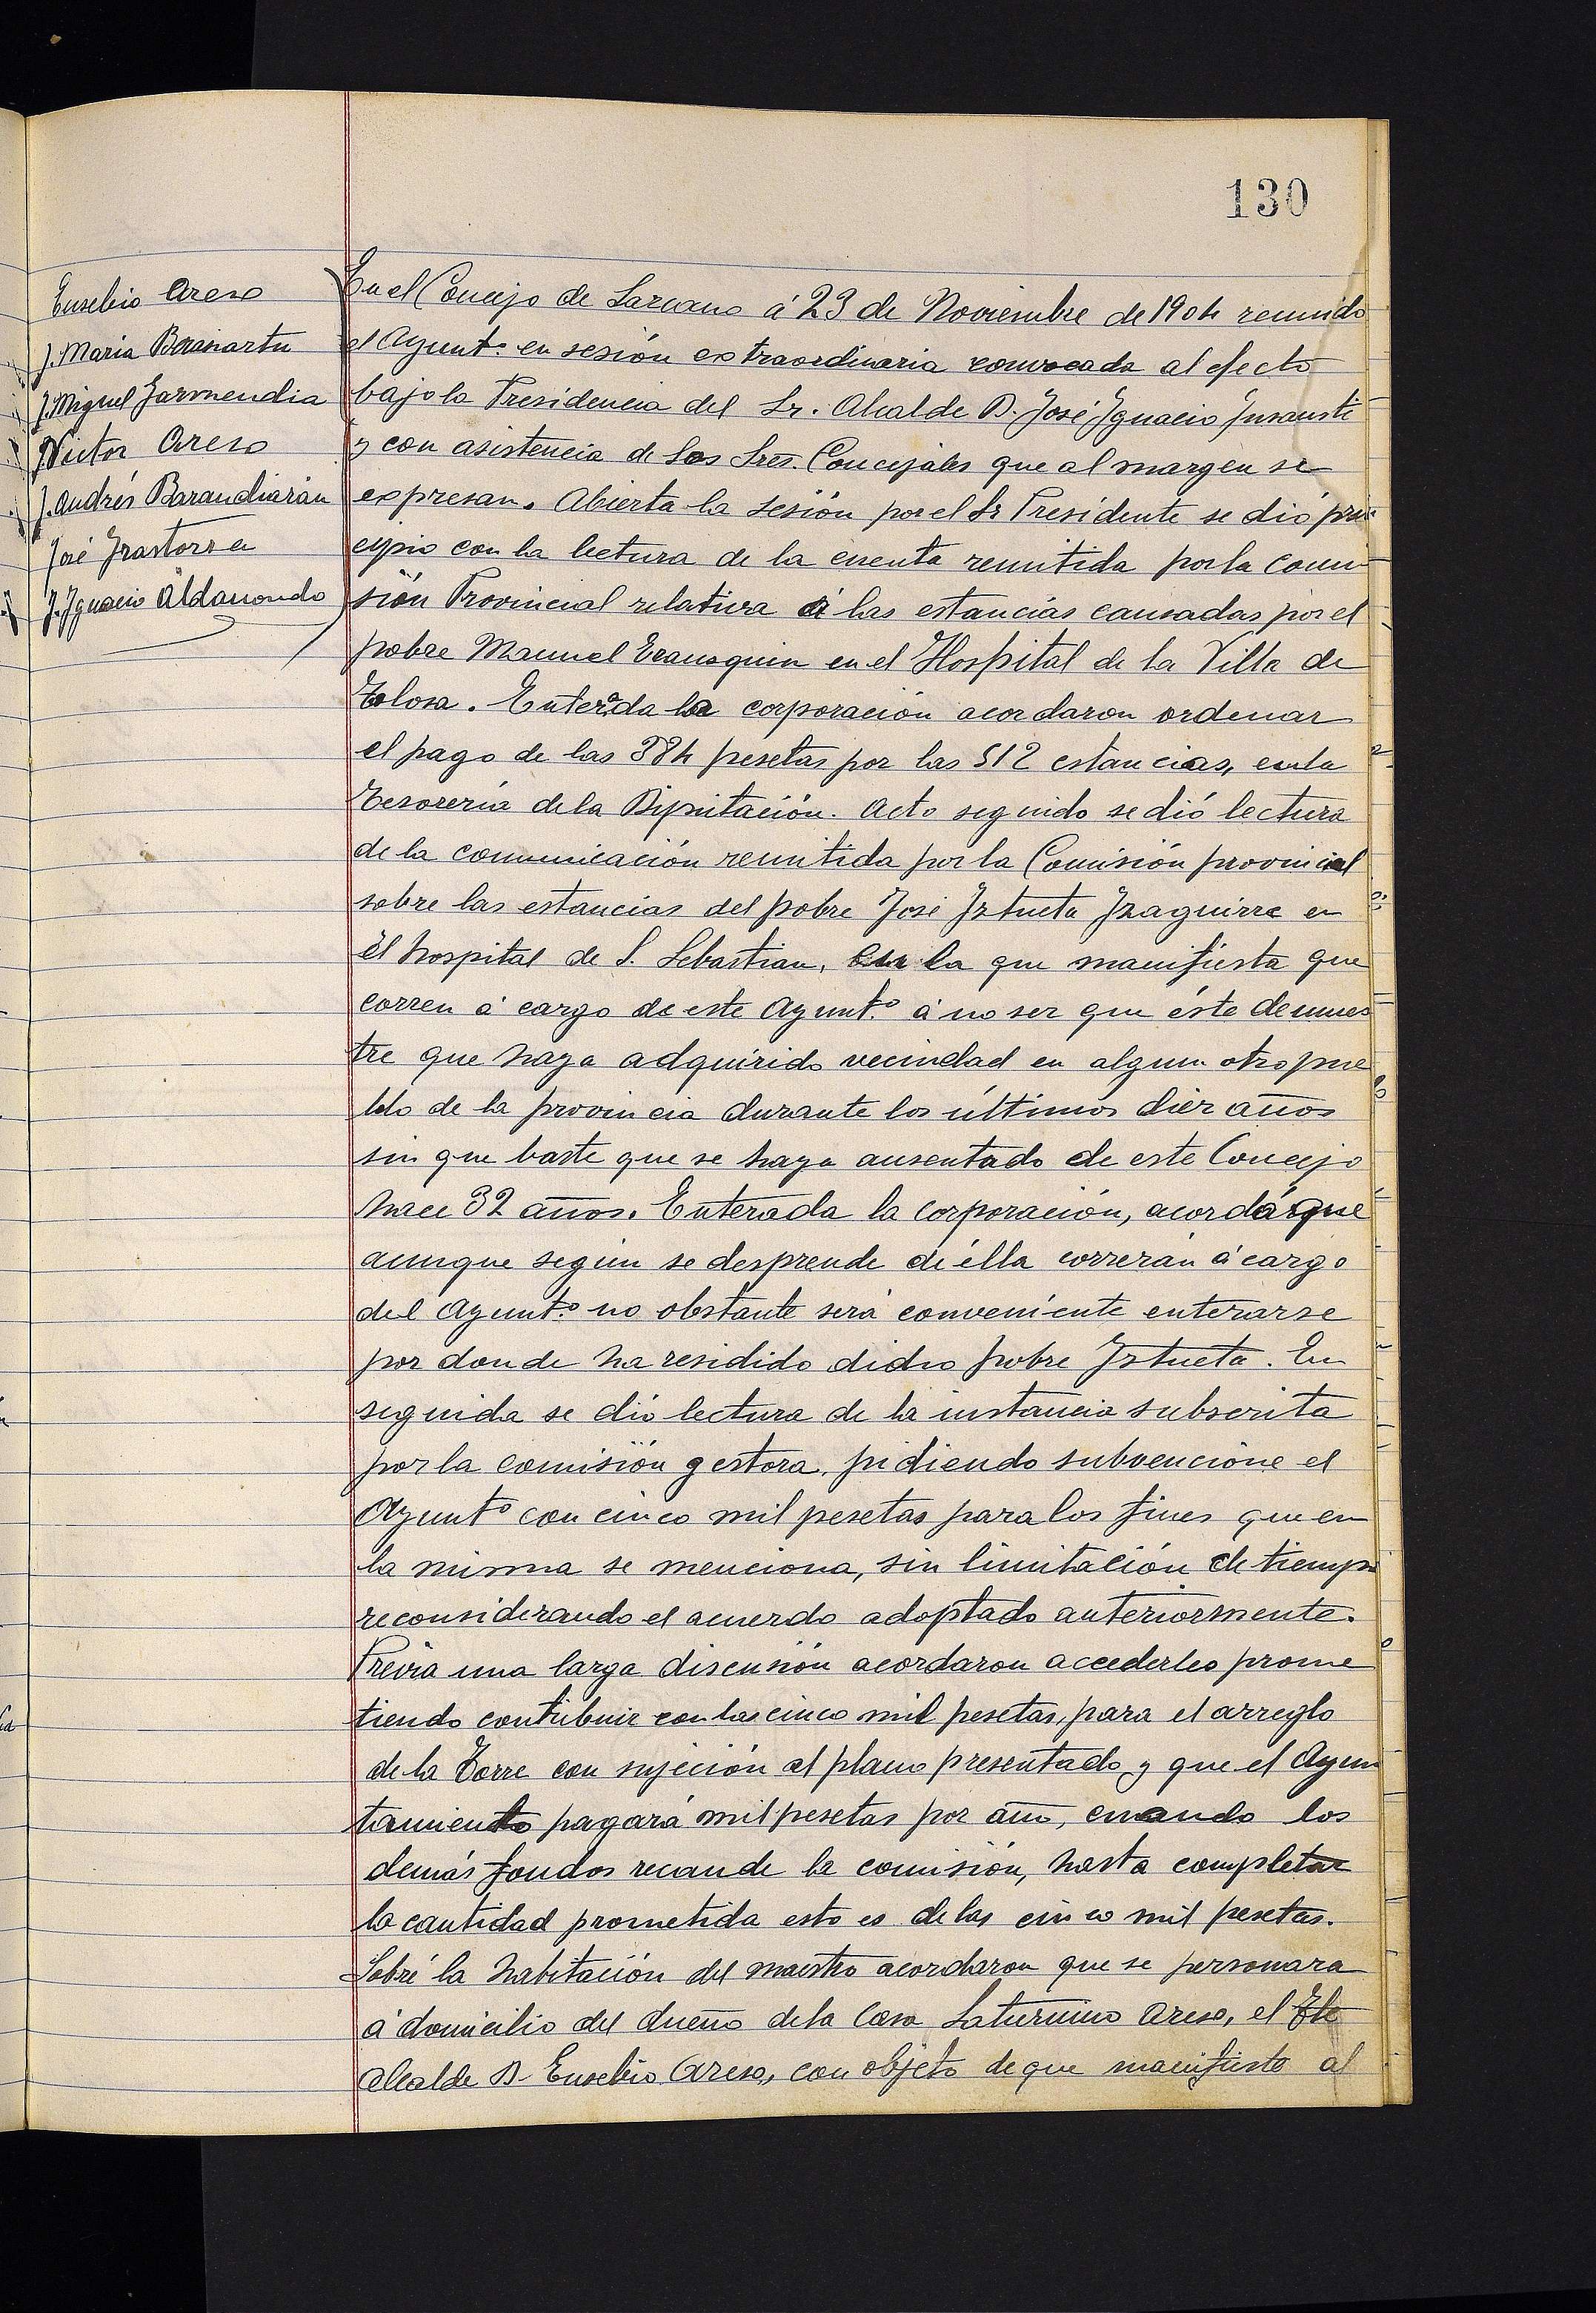 130
Eusebio Areso
J. Maria Barriartu
J. Miguel Garmendia
Victor Areso
J. Andrés Barandiarán
José Irastorza
J. Ignacio Aldanondo
En el Concejo de Lazcano á 23 de Noviembre de 1904 reunido
el Ayuntº en sesión extraordinaria convocada al efecto
bajo la Presidencia del Sr. Alcalde D. José Ignacio Insausti
y con asistencia de los Sres. Concejales que al margen se
expresan. Abierta la sesión por el Sr Presidente se dió prin
cipio con la lectura de la cuenta remitida por la Comi
sión Provincial relativa á las estancias causadas por el
pobre Manuel Erausquin en el Hospital de la Villa de
Tolosa. Enterada la corporación acordaron ordenar
el pago de las 384 pesetas por las 512 estancias, en la
Tesorería de la Diputación. Acto seguido se dió lectura
de la comunicación remitida por la Comisión provincial
sobre las estancias del pobre José Iztueta Izaguirre en
él hospital de S. Sebastian, en la que manifiesta que
corren á cargo de este Ayuntº á no ser que éste demues
tre que haya adquirido vecindad en algun otro pue
blo de la provincia durante los últimos diez años
sin que baste que se haya ausentado de este Concejo
hace 32 años. Enterada la corporación, acordó que
aunque según se desprende de élla correrán á cargo
del Ayuntº no obstante será conveniente enterarse
por donde ha residido dicho pobre Iztueta. En
seguida se dió lectura de la instancia subscrita
por la comisión gestora, pidiendo subvencione el
Ayuntº con cinco mil pesetas para los fines que en
la misma se menciona, sin limitación de tiempo
reconsiderando el acuerdo adoptado anteriormente.
Prévia una larga discusión acordaron accederles prome
tiendo contribuir con las cinco mil pesetas, para el arreglo
de la Torre con sujeción al plano presentado y que el Ayun
tamiento pagará mil pesetas por año, cuando los
demás fondos recaude la comisión, hasta completar
la cantidad prometida esto es de las cinco mil pesetas.
Sobre la habitación del maestro acordaron que se personara
á domicilio del dueño de la Casa Saturnino Areso, el Tte
Alcalde D. Eusebio Areso, con objeto de que manifieste al